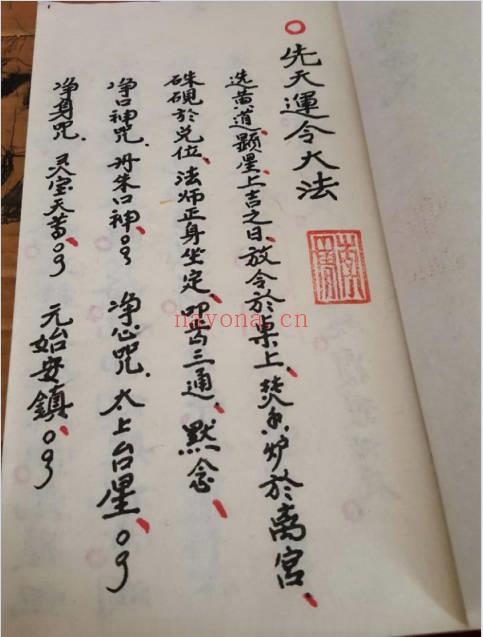 先天運令大法
选黄道、顕星、上吉之日、放令於桌上、焚香炉於离宫、
硃硯於兑位、法师正身坐定、叩齿三通、默念、
净口神咒、丹朱口神、净心咒、太上台星、
净身咒、灵宝天尊、元始安鎮、
nayona.cn